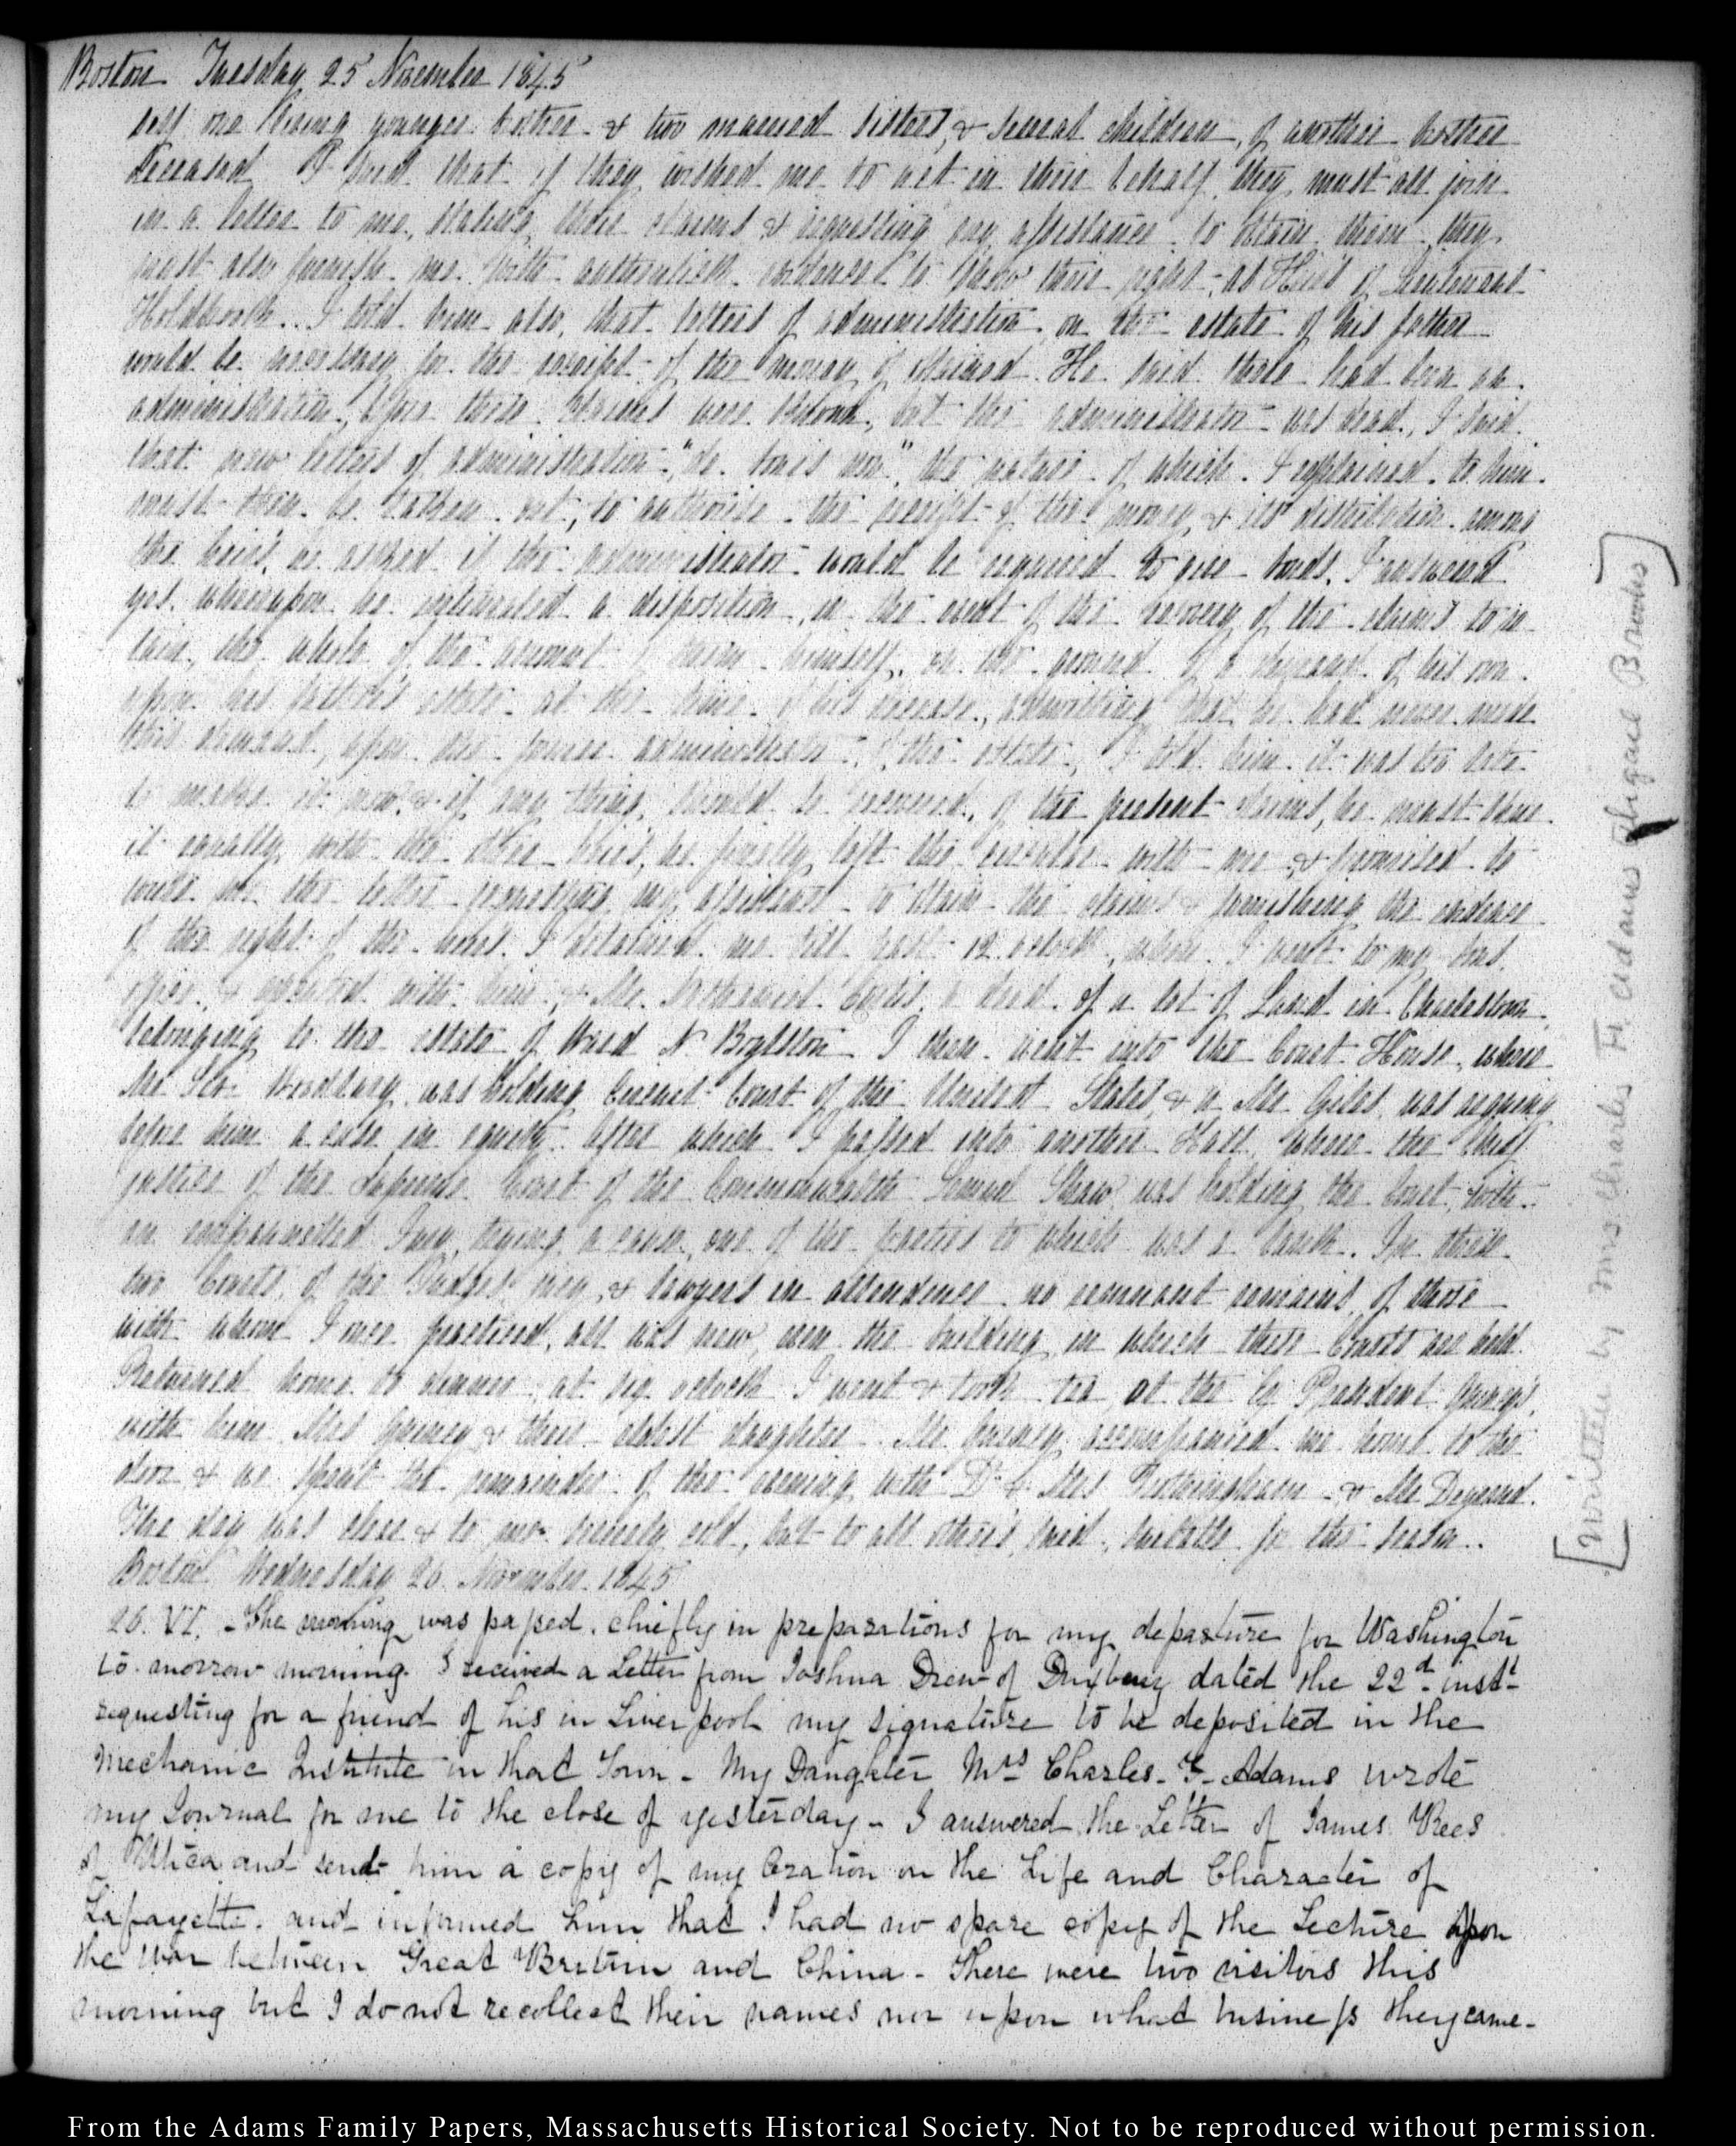 Boston Tuesday 25 November 1845
self one living younger brother & two married sisters, & several children, of another brother
deceased I said that if they wished me to act in their behalf, they must all join
in a letter to me, stating their claims & requesting my assistance to obtain them, they
must also furnish me with authentick evidence to show their right, as Heirs of Lieutenant
Holdbrook.. I told him also, that letters of administration, on the estate of his father
would be necessary for the receipt of the money if obtained. He said there had been an
administration, before these claims were known, but the administrator was dead, I said
that new letters of administration "de bonis non", the nature of which I explained to him
must then be taken out, to authorise the receipt of the money, & its distribution among
the heirs, he asked if the administrator would be required to give bonds, I answered
yes, whereupon he intimated a disposition, in the event of the recovery of the claims to re-
tain, the whole of the amount himself, on the ground of a demand of his own
upon his father's estate at the time of his decease, admitting that he had never made
this demand, upon the former administrator of the estate, I told him it was too late
to make it now & if any thing should be recovered, of the present claims, he must share
it equally with the other heirs, he finally left the circular with me & promised to
write me the letter requesting my assistance to obtain the claims & furnishing the evidence
of the right of the heirs. detained me till past 12 oclock, when I went to my sons
office & executed with him, & Mr. Nathaniel Curtis, a deed of a lot of Land in Charlestown,
belonging to the estate of Ward N Boylston I then went into the Court House, where
Mr Woodbury was holding Circuit Court of the United States, & a Mr Giles was arguing
before him a case in equity. After which I passed into another Hall, where the Chief
justice of the Supreme Court of the Commonwealth Lemuel Shaw, was holding the Court, with
an empannelled Jury, trying a cause, one of the parties to which was a bank. In these
two Courts, of the Judges, jury, & lawyers in attendance no remnant remains of those
with whom I once practiced, all was new, even the building in which these Courts are held.
Returned home to dinner, at six oclock I went & took tea at the Ex President Quincy's,
with him Mrs Quincy & their eldest daughter. Mr Quincy accompanied me home to the
door & we spent the remainder of the evening with Dr & Mrs Frothingham & Mr Degrand.
The day was clear & to me severely cold, but to all others, said, suitable for the season..
Boston Wednesday 26 November 1845
26. VI. - The morning was passed chiefly in preparations for my departure for Washington
to-morrow morning. I received a Letter from Joshua Drew of Duxbury dated the 22d. inst.t
requesting for a friend of his in Liverpool my signature to be deposited in the
Mechanic Institute in that Town - My Daughter Mrs Charles F. Adams wrote
my Journal for me to the close of yesterday - I answered the Letter of James Rees
of Utica and send him a copy of my Oration on the Life and Character of
Lafayette. and informed him that I had no spare copy of the Lecture upon
the War between Great Britain and China - There were two visitors this
morning but I do not recollect their names nor upon what business they came -
[written by Mrs Charles F. Adams Abigail Brooks]
From the Adams Family Papers, Massachusetts Historical Society. Not to be reproduced without permission.